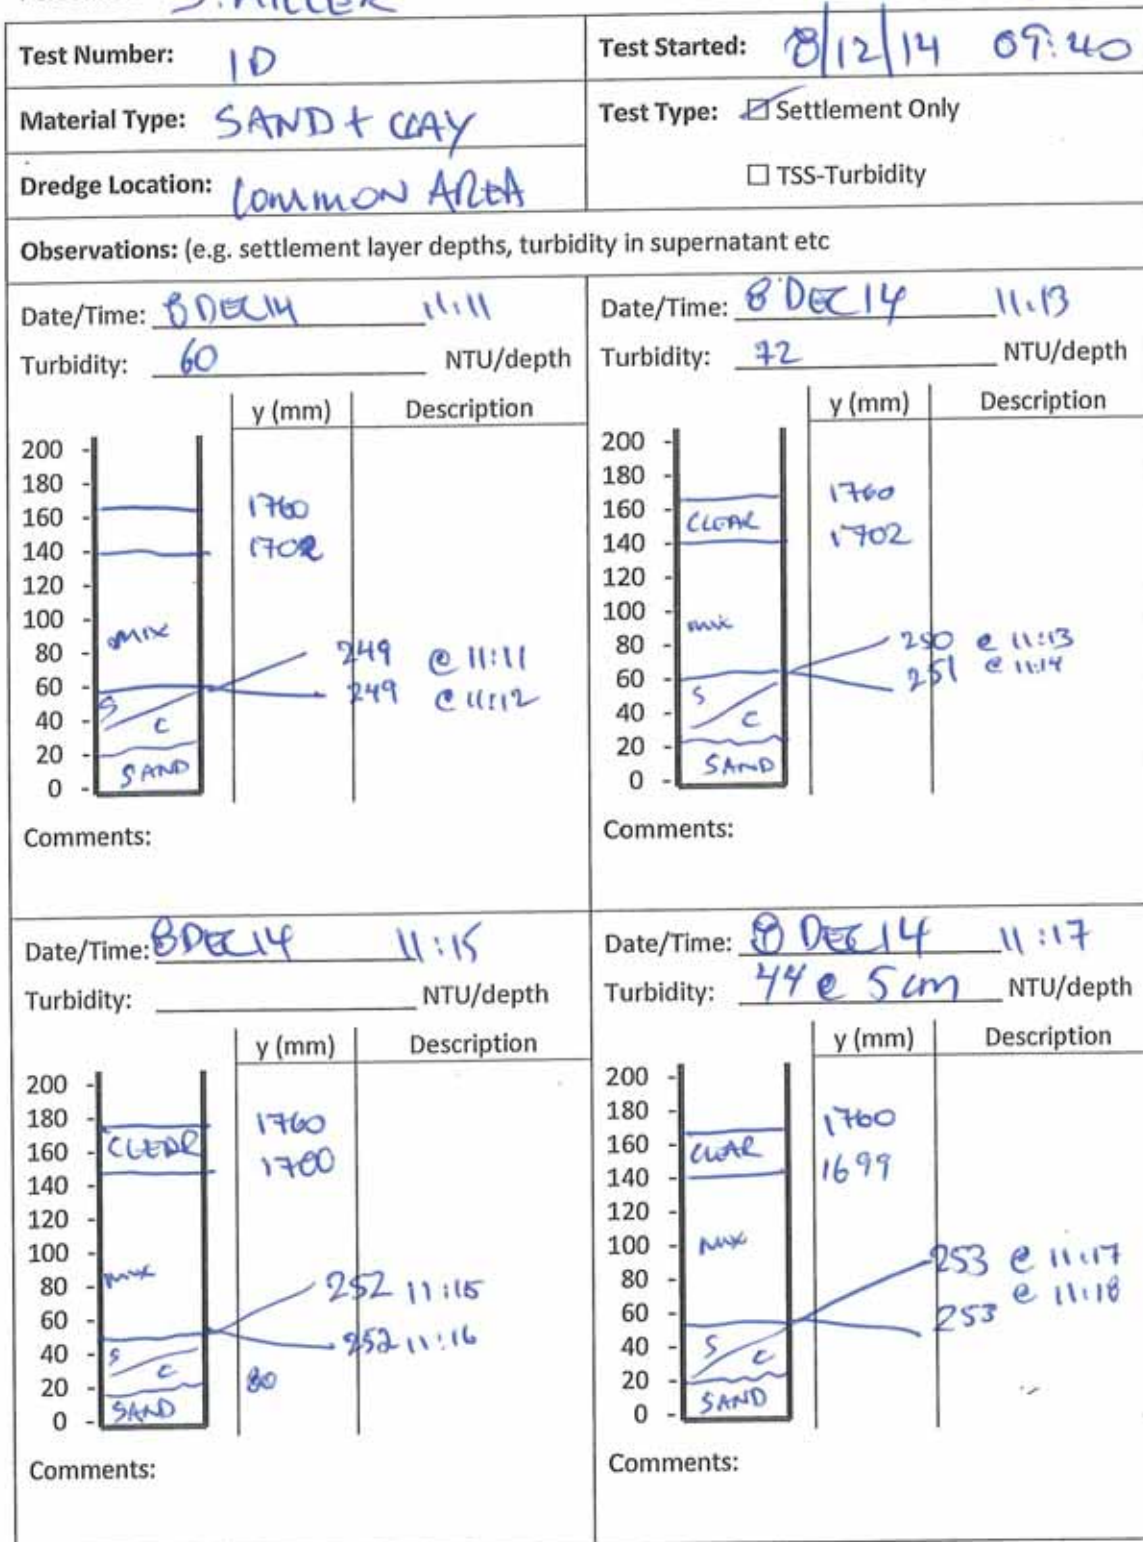 S. MILLER
Test Number: 1D
Test Started: 8/12/14 09:40
Material Type: SAND + CLAY
Test Type: Settlement Only
TSS-Turbidity
Dredge Location: COMMON AREA
Observations: (e.g. settlement layer depths, turbidity in supernatant etc
Date/Time: 8 DEC 14 11:11
Turbidity: 60 NTU/depth
y (mm) Description
200
180
160
140
120
100
80
60
40
20
0
1760
1702
MIX
249 @ 11:11
249 @ 11:12
S
C
SAND
Comments:
Date/Time: 8 DEC 14 11:13
Turbidity: 72 NTU/depth
y (mm) Description
200
180
160
140
120
100
80
60
40
20
0
1760
CLEAR
1702
MIX
250 @ 11:13
251 @ 11:14
S
C
SAND
Comments:
Date/Time: 8 DEC 14 11:15
Turbidity: NTU/depth
y (mm) Description
200
180
160
140
120
100
80
60
40
20
0
1760
CLEAR
1700
MIX
252 11:15
252 11:16
S
C
80
SAND
Comments:
Date/Time: 8 DEC 14 11:17
Turbidity: 44 @ 5 cm NTU/depth
y (mm) Description
200
180
160
140
120
100
80
60
40
20
0
1760
CLEAR
1699
MIX
253 @ 11:17
253 @ 11:18
S
C
SAND
Comments: